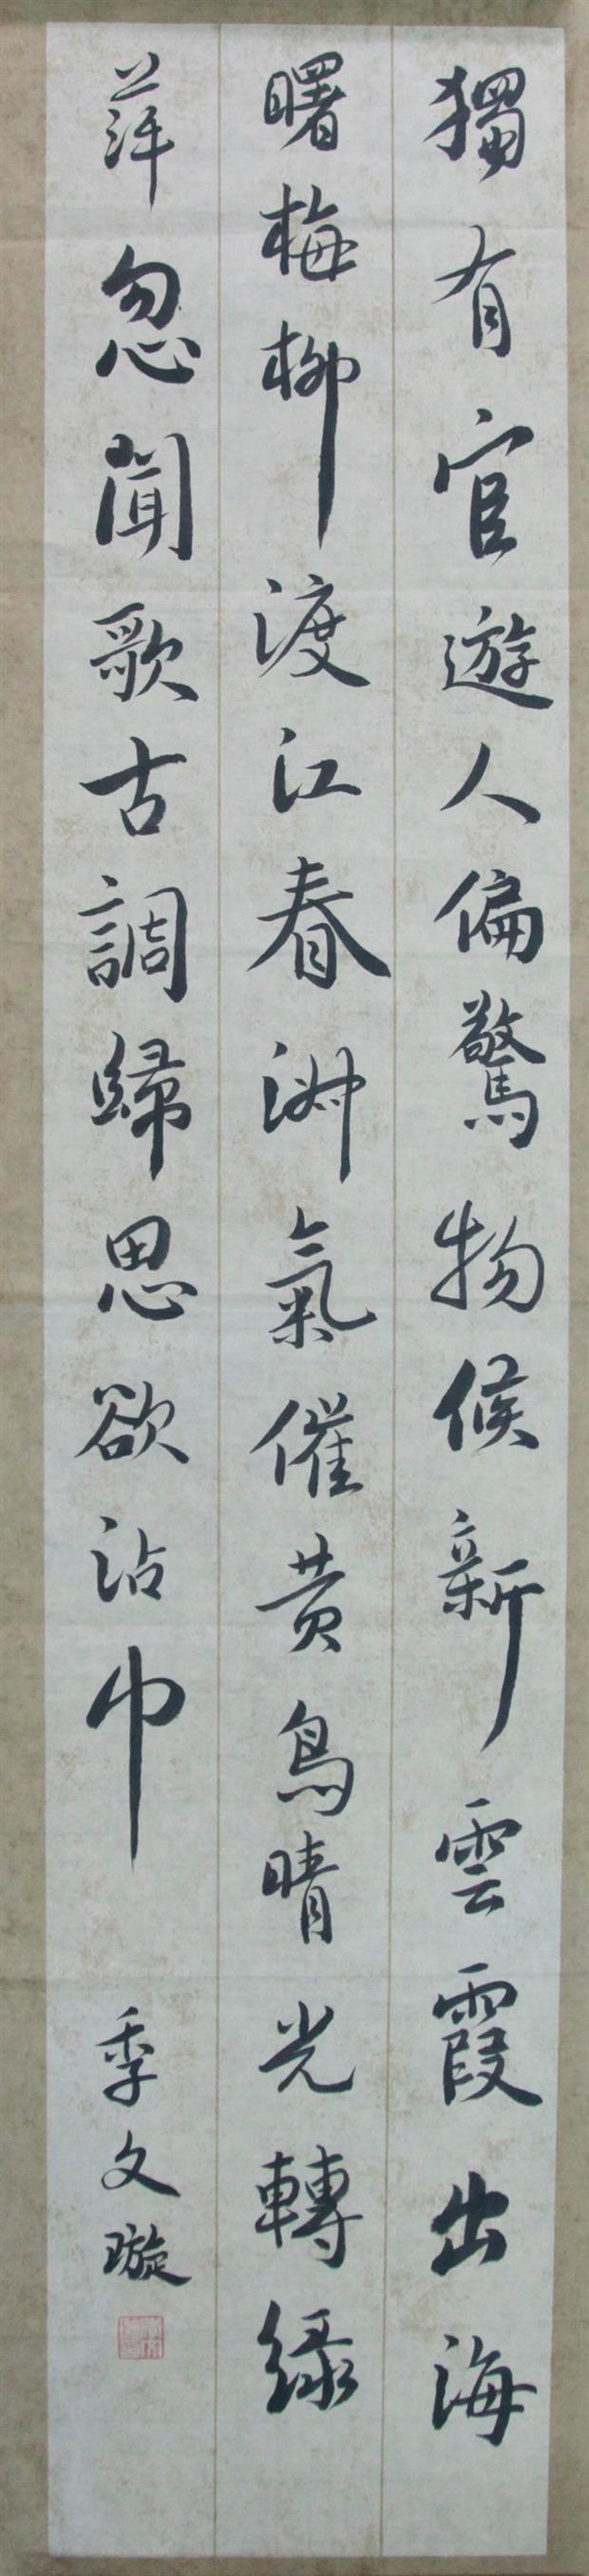 獨有官遊人偏驚物候新雲霞出海
曙梅柳渡江春淑氣催黄鳥晴光轉緑
萍忽聞歌古調歸思欲沾巾
季文璇